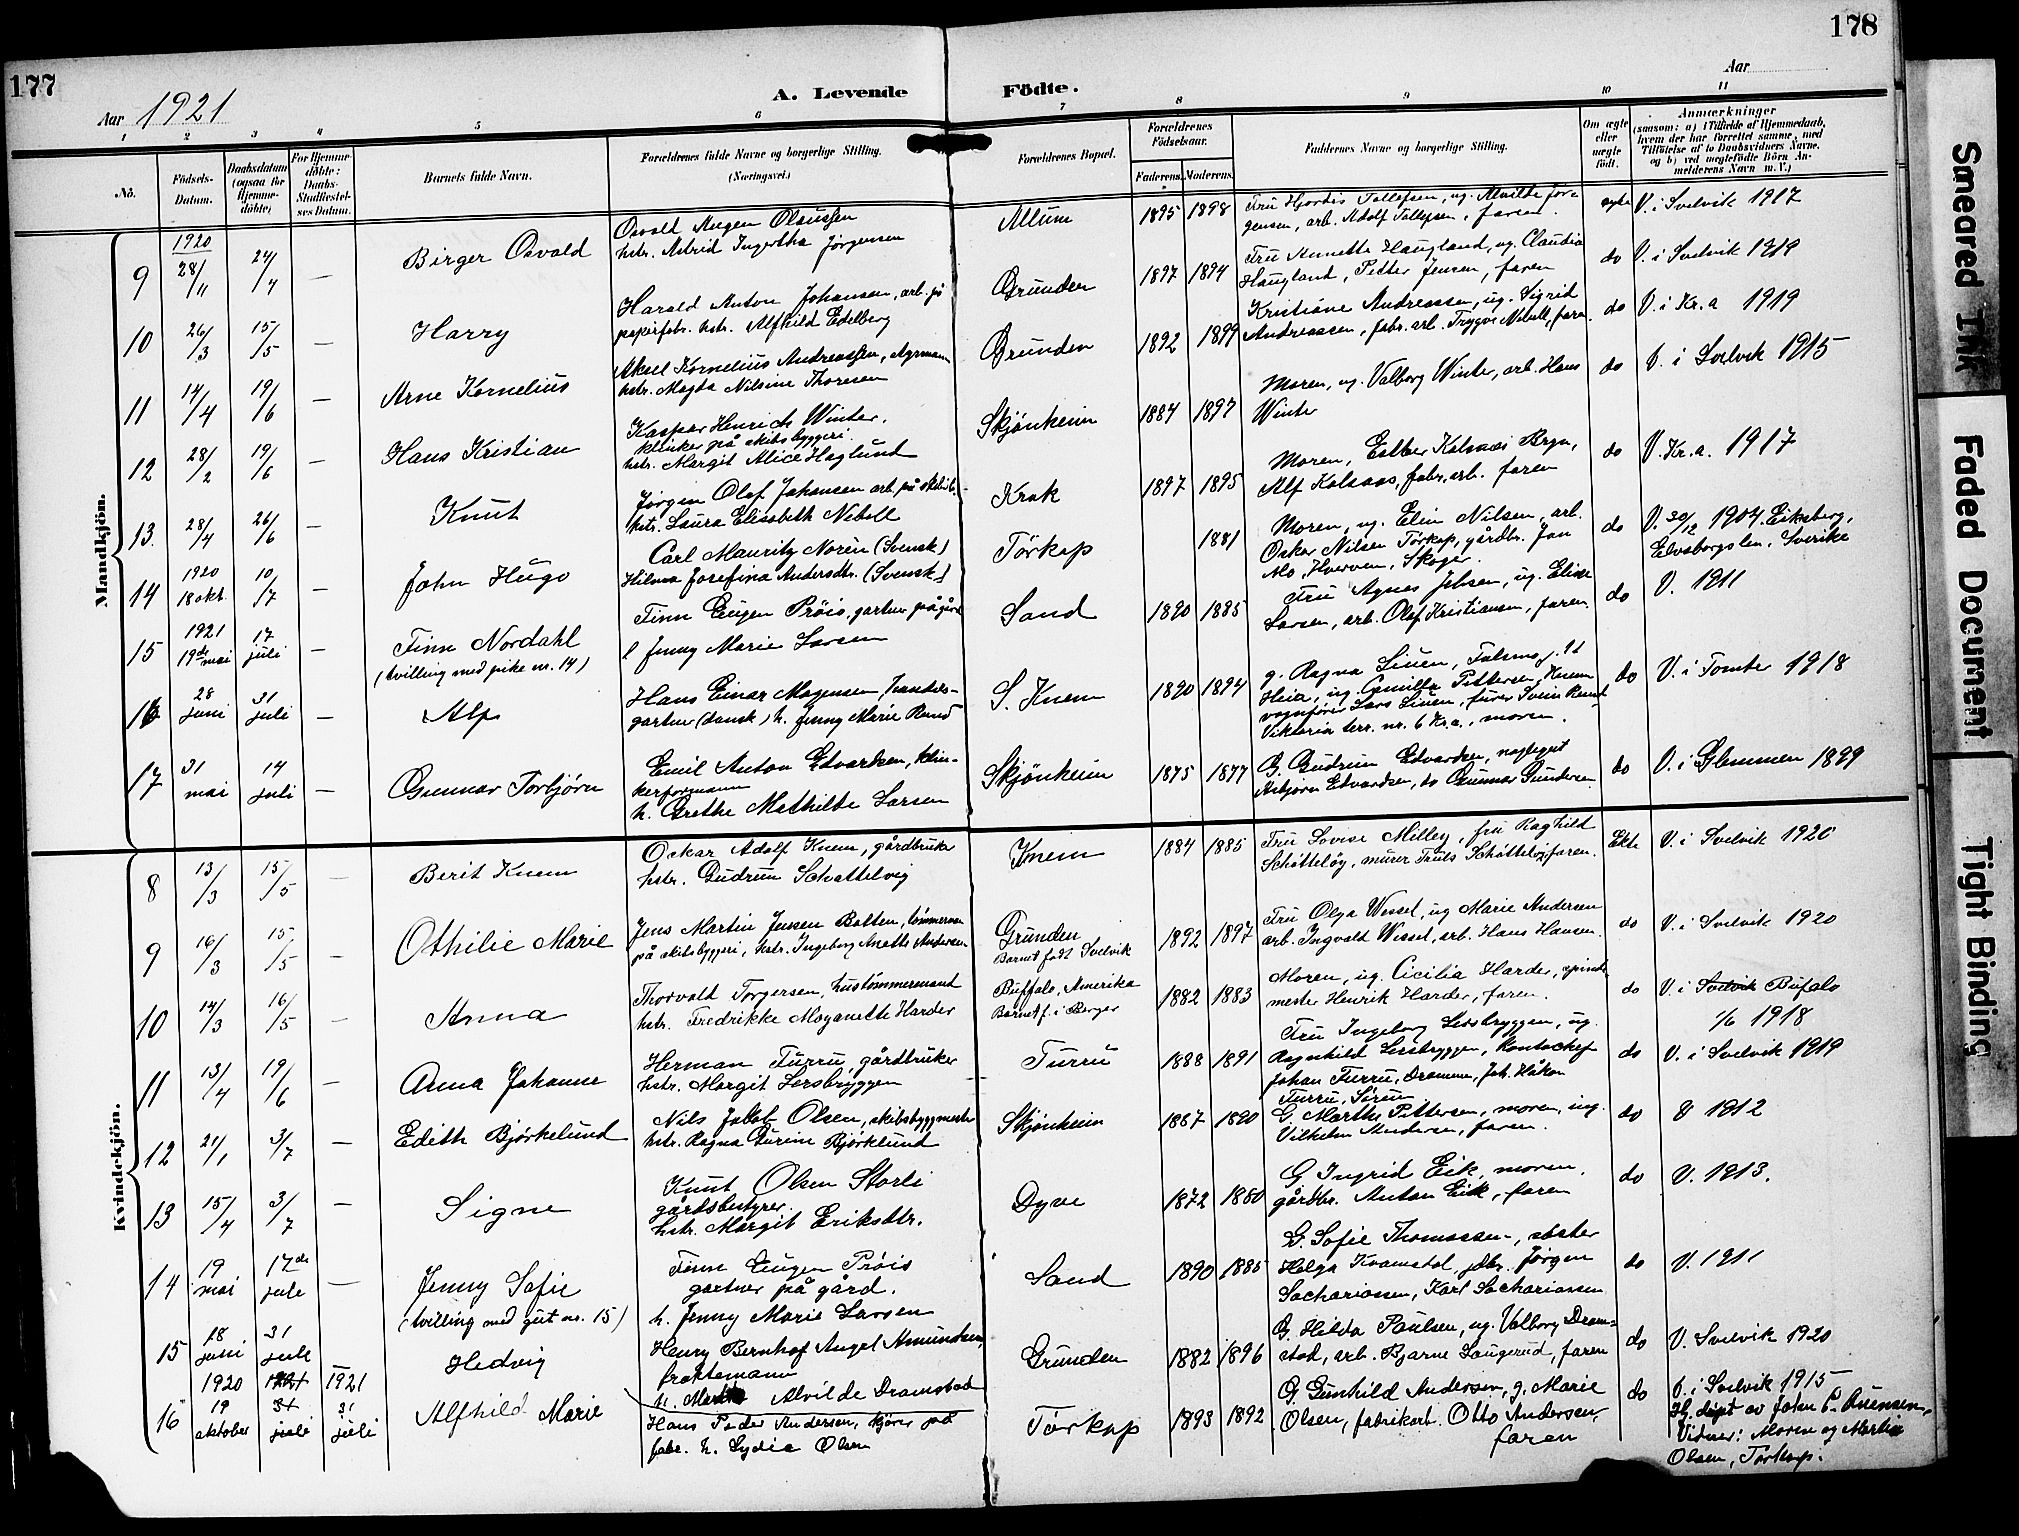 177
178
Aar 1921
A. Levende Födte.
Aar
1 2 3 4 5 6 7 8 9 10 11
No.
Födsels-Datum.
Daabsdatum (ogsaa for Hjemmedöbte)
For Hjemmedöbte: Daabs-Stadfæstelses Datum.
Barnets fulde Navn.
Forældrenes fulde Navne og borgerlige Stilling.
(Næringsvei.)
Forældrenes Bopæl.
Forældrenes Födselsaar.
Faderens. Moderens.
Faddernes Navne og borgerlige Stilling.
Om ægte eller uægte födt.
Anmærkninger
(saasom: a) i Tilfælde af Hjemmedaab, hvem der har forrettet samme, med Tilföielse af to Daabsvidners Navne, og b) ved uægtefödte Börn Anmelderens Navn m. V.)
Mandkjön.
9 1920 28/11 24/4 — Birger Osvald
Osvald Mugen Olaussen
hstr. Astrid Ingertha Jørgensen
Allum 1895 1898
Fru Hjørdis Tollefsen, ug. Alvilde Jør-
gensen, arb. Adolf Tollefsen, faren.
egte V. i Svelvik 1917
10 26/3 15/5 — Harry
Harald Anton Johansen, arb. på
papirfabr. hstr. Alfhild Edelberg
Grunden 1897 1894
Fru Annette Haugland, ug. Claudia
Haugland, Petter Jensen, faren
do V. i Svelvik 1919
11 14/4 19/6 — Arne Kornelius
Aksel Kornelius Andreassen, styrmann
hstr. Magda Nilsine Thoresen
Grunden 1892 1899
Kristiane Andreassen, ug. Sigrid
Andreassen, fabr. arb. Trygve Nebell, faren.
do V. i Kr.a 1919
12 28/2 19/6 — Hans Kristian
Kaspar Henrich Winter,
klinker på skibsbyggeri
hstr. Margit Alice Haglund
Skjønheim 1884 1897
Moren, ug. Valborg Winter, arb. Hans
Winter
do b. i Svelvik 1915
13. 28/4 26/6 — Knut
Jørgen Olaf Johansen arb. på skibsb.
hstr. Laura Elisabeth Nebell
Krok 1897 1895
Moren, Esther Kolsaas Bryn,
Alf Kolsaas, fabr. arb. faren
do V. Kr.a. 1917
14 1920 18 okt. 10/7 — John Hugo
Carl Mauritz Norèn (Svensk)
Hilma Josefina Andersdtr. (Svensk)
Törkop 1881
Moren, ug. Elin Nilsen, arb.
Oskar Nilsen Törkop, gårdbr. Jon
Mo, Hverven, Skoger.
do V. 30/12 1904. Eiksberg,
Elvsborgs len. Sverike
15 1921 19de mai 17 juli — Finn Nordahl
(tvilling med pike nr. 14)
Finn Eugen Pröis, gartner på gård
& Jenny Marie Larsen
Sand 1890 1885
Fru Agnes Jebsen, ug. Elise
Larsen, arb. Olaf Kristiansen, faren.
do V. 1911
16 28 juni 31 juli — Alf
Hans Einar Mogensen, handels-
gartner (dansk) h. Jenny Marie Rund
S. Knem 1890 1894
g. Ragna Linen,
Heia, ug. Camilla Pettersen, Knem
vognfører Lars Linen, fører Svein Rund
Viktoria terr. nr. 6 Kr.a., moren.
do V. i Tomter 1918
17 31 mai 14 juli — Gunnar Torbjørn
Emil Anton Edvardsen, klin-
kerformann
h. Grethe Mathilde Larsen
Skjønheim 1875 1877
G. Gudrun Edvardsen,
Asbjørn Edvardsen, do Gunnar Gundersen
do V. i Glemmen 1899
Kvindekjön.
8 13/3 15/5 — Berit Knem
Oskar Adolf Knem, gårdbruker
hstr. Gudrun Schattelvig
Knem 1884 1885
Fru Lovise Milley, fru Raghild
murer Truls faren.
Ekte V. i Svelvik 1920
9 16/3 15/5 — Othilie Marie
Jens Martin Jensen Bolten, tömmerm
på skibsbyggeri, hstr. Ingeborg Anette Andersen
Grunden
Barnet født Svelvik 1892 1897
Fru Olga Wessel, ug Marie Andersen
arb. Ingvald Wessel, arb. Hans Hansen.
do V. i Svelvik 1920
10 14/3 16/5 — Anna
Thorvald Torgersen, hustömmermand
hstr. Fredrikke Moyanette Harder
Buffalo, Amerika
Barnet f. i Berger 1882 1883
Moren, ug. Cicilia Harder, spinde
mester Henrik Harder, faren.
do V. i Svelvik Bufalo
1/6 1918
11 13/4 19/6 — Anna Johanne
Herman Furru, gårdbruker
hstr. Margit Lersbryggen
Furru 1888 1891
Fru Ingeborg Lersbryggen, ug.
Ragnhild Lersbryggen, Kontorchef
Johan Furru, Drammen, Joh. Håkon
Furru, Sørum
do V. i Svelvik 1919
12 21/1 3/7 — Edith Bjørkelund
Nils Jakob Olsen, skibsbyggmester
hstr. Ragna Gurine Bjørklund
Skjønheim 1887 1890
G. Marthe Pettersen, moren, ug.
Vilhelm Andersen, faren.
do V 1912
13 15/4 3/7 — Signe
Knut Olsen Storli
gårdsbestyrer.
hstr. Margit Eriksdtr.
Dyve 1872 1880
G Ingrid Eik, moren,
gårdbr. Anton Eik, faren
do V. 1913.
14 19 mai 17de jule — Jenny Sofie
(tvilling med gut nr. 15)
Finn Eugen Prøis
gartner på gård.
h. Jenny Marie Larsen
Sand 1890 1885
G. Sofie Thomassen, søster
Helga Kvamstal, gdbr. Jørgen
Sachariassen, Karl Sachariassen
do V. 1911
15 28 juni 31 jule Hedvig
Henry Bernhof Angel Amundsen,
fraktemann
h. Alvilde Dramstad
Grunden 1882 1896
G. Hilda Paulsen, ug. Valborg Dram-
stad, arb. Bjarne Laugerud, faren
do V. Svelvik 1920
16 1920 19 oktober 1921 31 juli 1921 31 juli Alfhild Marie
Hans Peder Andersen, kjører på
fabr. h. Lydia Olsen
Törkop 1893 1892
G. Gunhild Andersen, g. Marie
Olsen, fabrikarb. Otto Andersen,
faren
do b. i Svelvik 1915
Hj. døpt av Johan C. Auensen,
Vidner: Moren og Martin
Olsen, Törkop.
Smeared Ink
Faded Document
Tight Binding